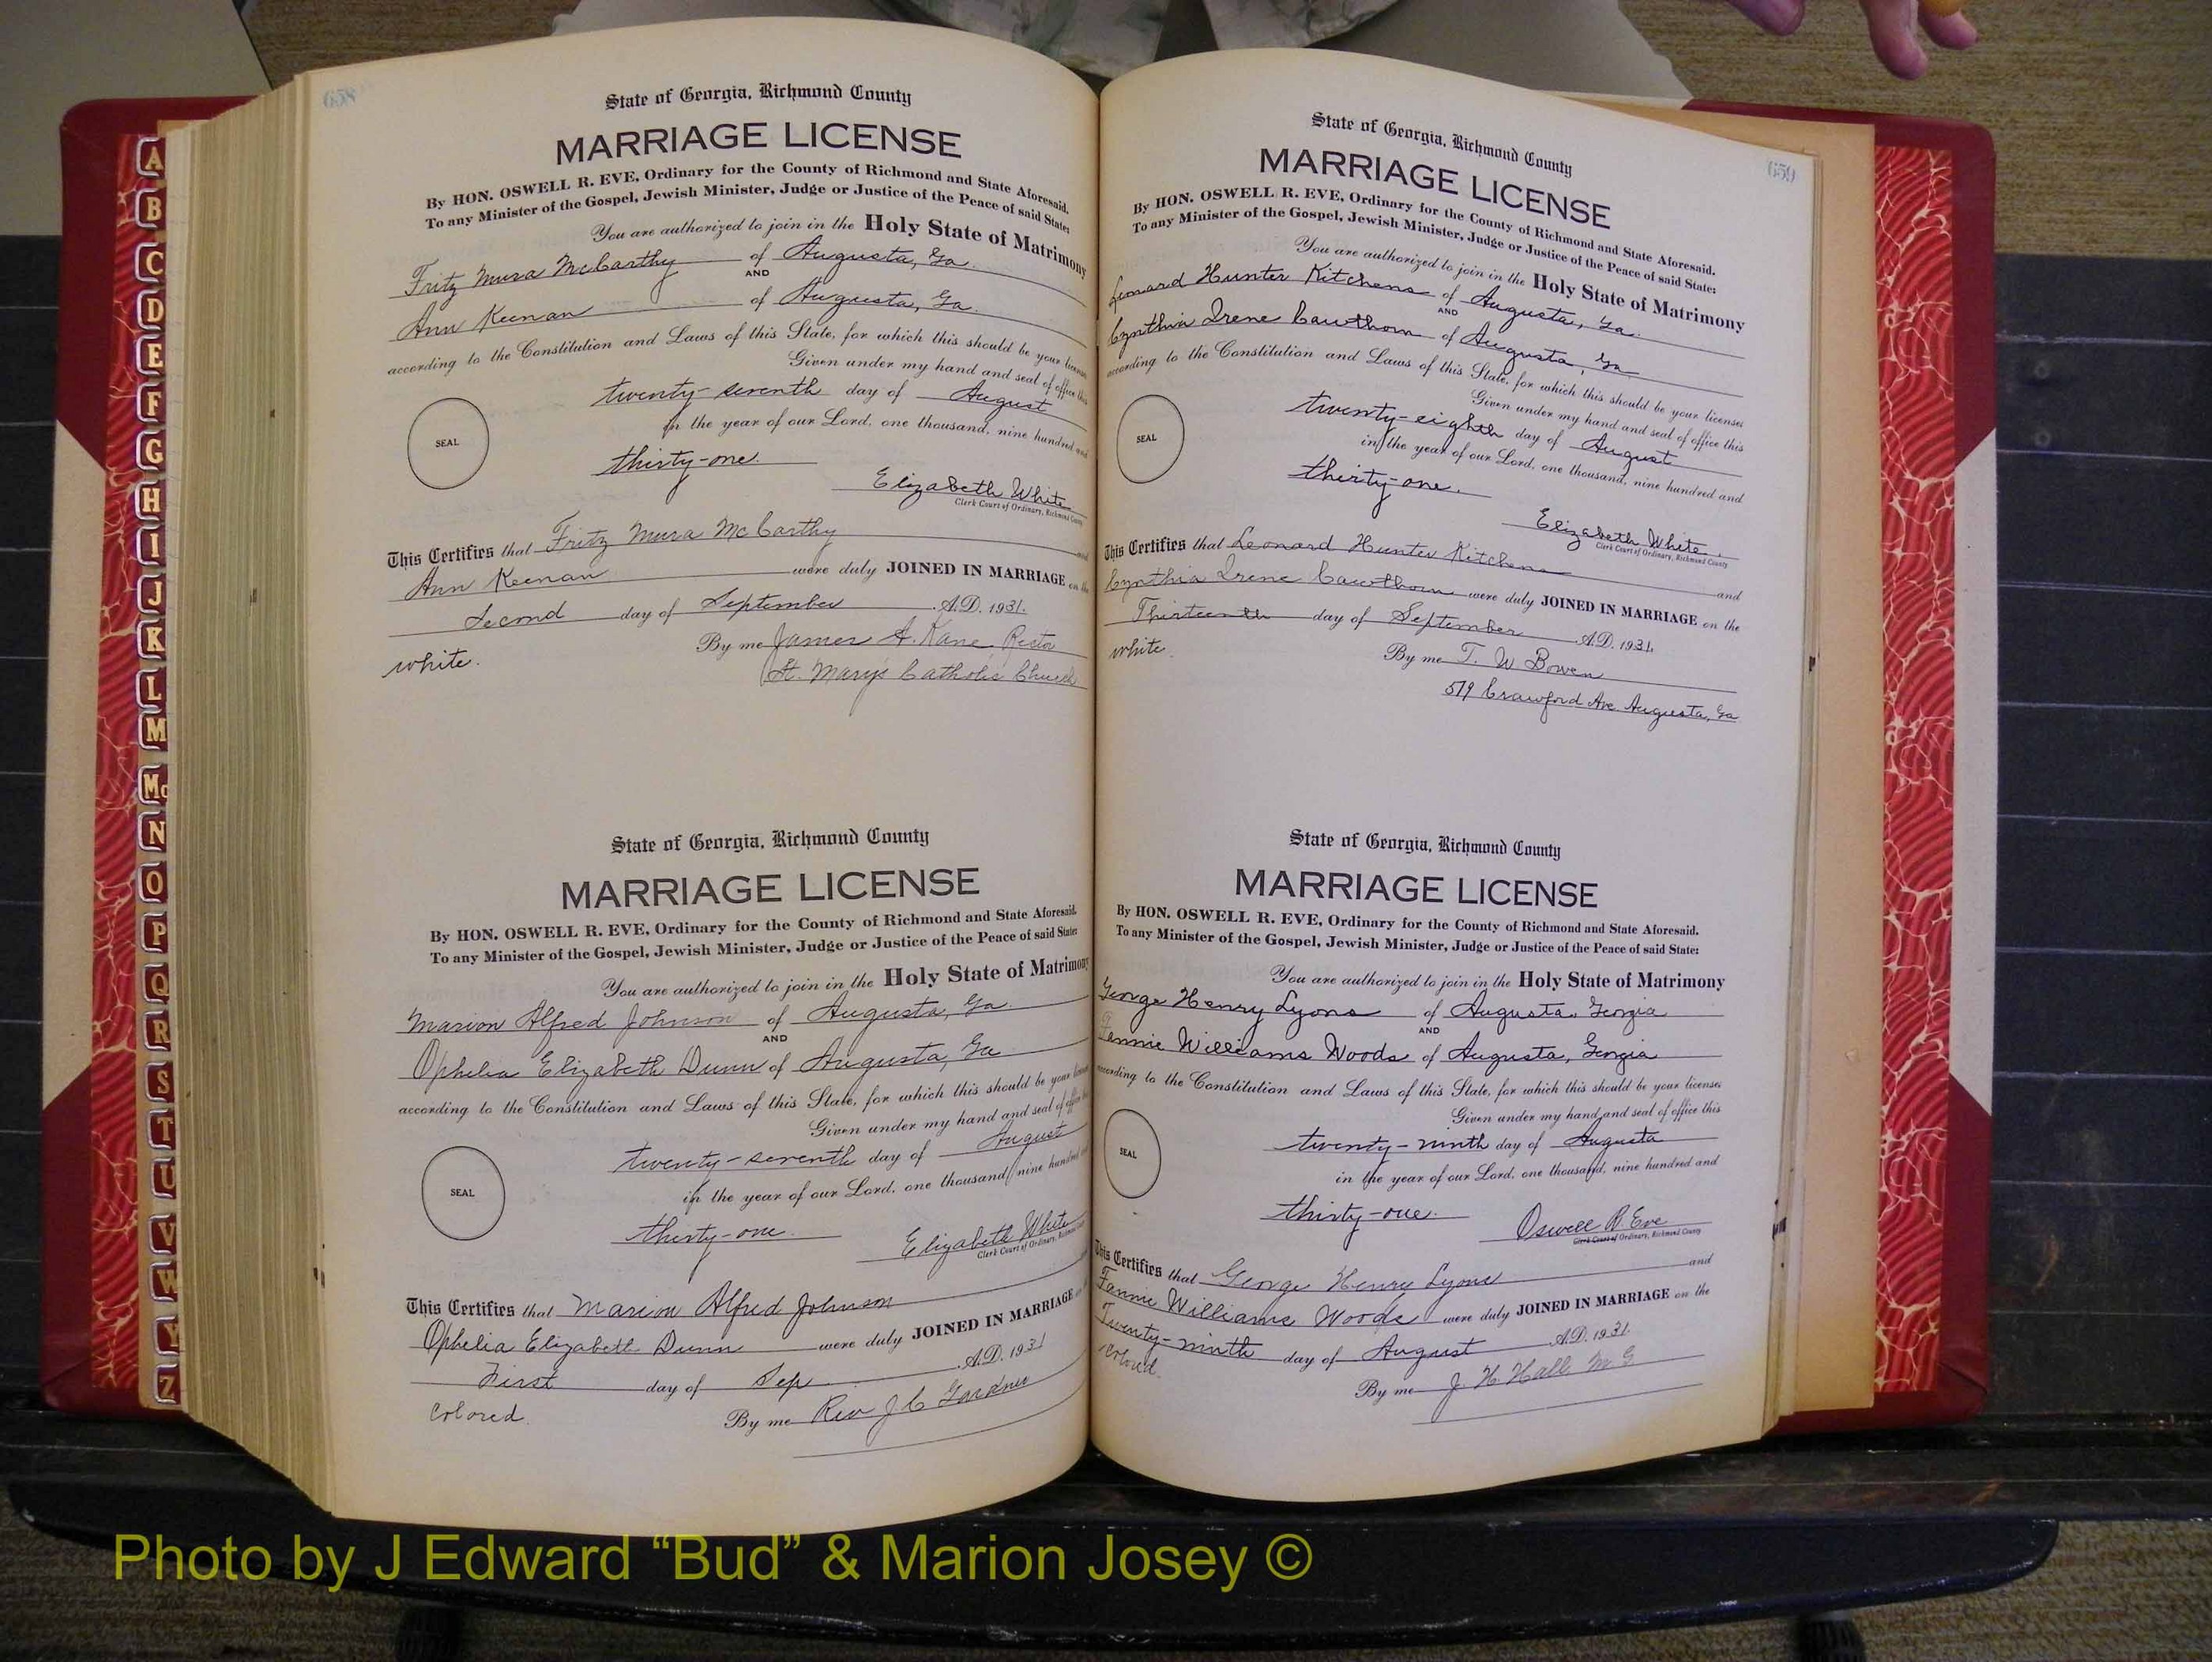 658
State of Georgia, Richmond County
MARRIAGE LICENSE
By HON. OSWELL R. EVE, Ordinary for the County of Richmond and State Aforesaid.
To any Minister of the Gospel, Jewish Minister, Judge or Justice of the Peace of said State:
You are authorized to join in the Holy State of Matrimony
Fritz Mura McCarthy of Augusta, Ga.
AND
Ann Keenan of Augusta, Ga.
according to the Constitution and Laws of this State, for which this should be your license
Given under my hand and seal of office this
twenty-seventh day of August
in the year of our Lord, one thousand, nine hundred and
SEAL
thirty-one.
Elizabeth White
Clerk Court of Ordinary, Richmond County
This Certifies that Fritz Mura McCarthy and
Ann Keenan were duly JOINED IN MARRIAGE on the
Second day of September A.D. 1931.
By me James A. Kane Rector
white.
St. Mary's Catholic Church
State of Georgia, Richmond County
MARRIAGE LICENSE
By HON. OSWELL R. EVE, Ordinary for the County of Richmond and State Aforesaid.
To any Minister of the Gospel, Jewish Minister, Judge or Justice of the Peace of said State:
You are authorized to join in the Holy State of Matrimony
Marion Alfred Johnson of Augusta, Ga.
AND
Ophelia Elizabeth Dunn of Augusta, Ga
according to the Constitution and Laws of this State, for which this should be your license
Given under my hand and seal of office this
twenty-seventh day of August
in the year of our Lord, one thousand, nine hundred and
SEAL
thirty-one.
Elizabeth White
Clerk Court of Ordinary, Richmond County
This Certifies that Marion Alfred Johnson
Ophelia Elizabeth Dunn were duly JOINED IN MARRIAGE
First day of Sep A.D. 1931
Colored.
By me Rev J C Gardner
659
State of Georgia, Richmond County
MARRIAGE LICENSE
By HON. OSWELL R. EVE, Ordinary for the County of Richmond and State Aforesaid.
To any Minister of the Gospel, Jewish Minister, Judge or Justice of the Peace of said State:
You are authorized to join in the Holy State of Matrimony
Leonard Hunter Kitchens of Augusta, Ga.
AND
Cynthia Irene Cawthorn of Augusta, Ga
according to the Constitution and Laws of this State, for which this should be your licenses
Given under my hand and seal of office this
twenty-eighth day of August
in the year of our Lord, one thousand, nine hundred and
SEAL
thirty-one.
Elizabeth White.
Clerk Court of Ordinary, Richmond County
This Certifies that Leonard Hunter Kitchens and
Cynthia Irene Cawthorn were duly JOINED IN MARRIAGE on the
Thirteenth day of September A.D. 1931.
white.
By me T. W Bowen
579 Crawford Ave Augusta, Ga
State of Georgia, Richmond County
MARRIAGE LICENSE
By HON. OSWELL R. EVE, Ordinary for the County of Richmond and State Aforesaid.
To any Minister of the Gospel, Jewish Minister, Judge or Justice of the Peace of said State:
You are authorized to join in the Holy State of Matrimony
George Henry Lyons of Augusta, Georgia
AND
Fannie Williams Woods of Augusta, Georgia
according to the Constitution and Laws of this State, for which this should be your licenses
Given under my hand and seal of office this
twenty-ninth day of Augusta
in the year of our Lord, one thousand, nine hundred and
SEAL
thirty-one.
Oswell R. Eve
Clerk Court of Ordinary, Richmond County
This Certifies that George Henry Lyons and
Fannie Williams Woods were duly JOINED IN MARRIAGE on the
Twenty-ninth day of August A.D. 1931.
colored.
By me J. H. Hall. M.G.
A
B
C
D
E
F
G
H
I
J
K
L
M
Mc
N
O
P
Q
R
S
T
U
V
W
Y
Z
Photo by J Edward “Bud” & Marion Josey ©